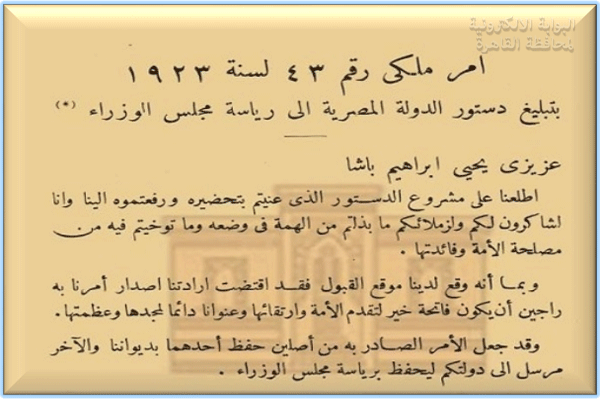 البوابة الالكترونية
لمحافظة القاهرة
امر ملكى رقم ٤٣ لسنة ١٩٢٣
بتبليغ دستور الدولة المصرية الى رياسة مجلس الوزراء (*)
عزيزى يحيى ابراهيم باشا
اطلعنا على مشروع الدستور الذى عنيتم بتحضيره ورفعتموه الينا وانا
لشاكرون لكم ولزملائكم ما بذلتم من الهمة فى وضعه وما توخيتم فيه من
مصلحة الأمة وفائدتها .
وبما أنه وقع لدينا موقع القبول فقد اقتضت ارادتنا اصدار أمرنا به
راجين أن يكون فاتحة خير لتقدم الأمة وارتقائها وعنوانا دائما لمجدها وعظمتها .
وقد جعل الأمر الصادر به من أصلين حفظ أحدهما بديواننا والآخر
مرسل الى دولتكم ليحفظ برياسة مجلس الوزراء .